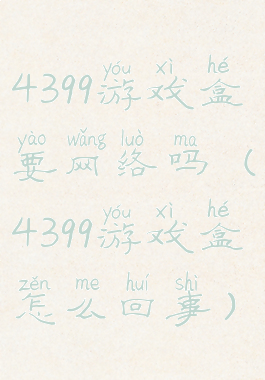 yóu xì hé
4399游戏盒
yào wǎng luò ma
要网络吗（
yóu xì hé
4399游戏盒
zěn me huí shì
怎么回事）